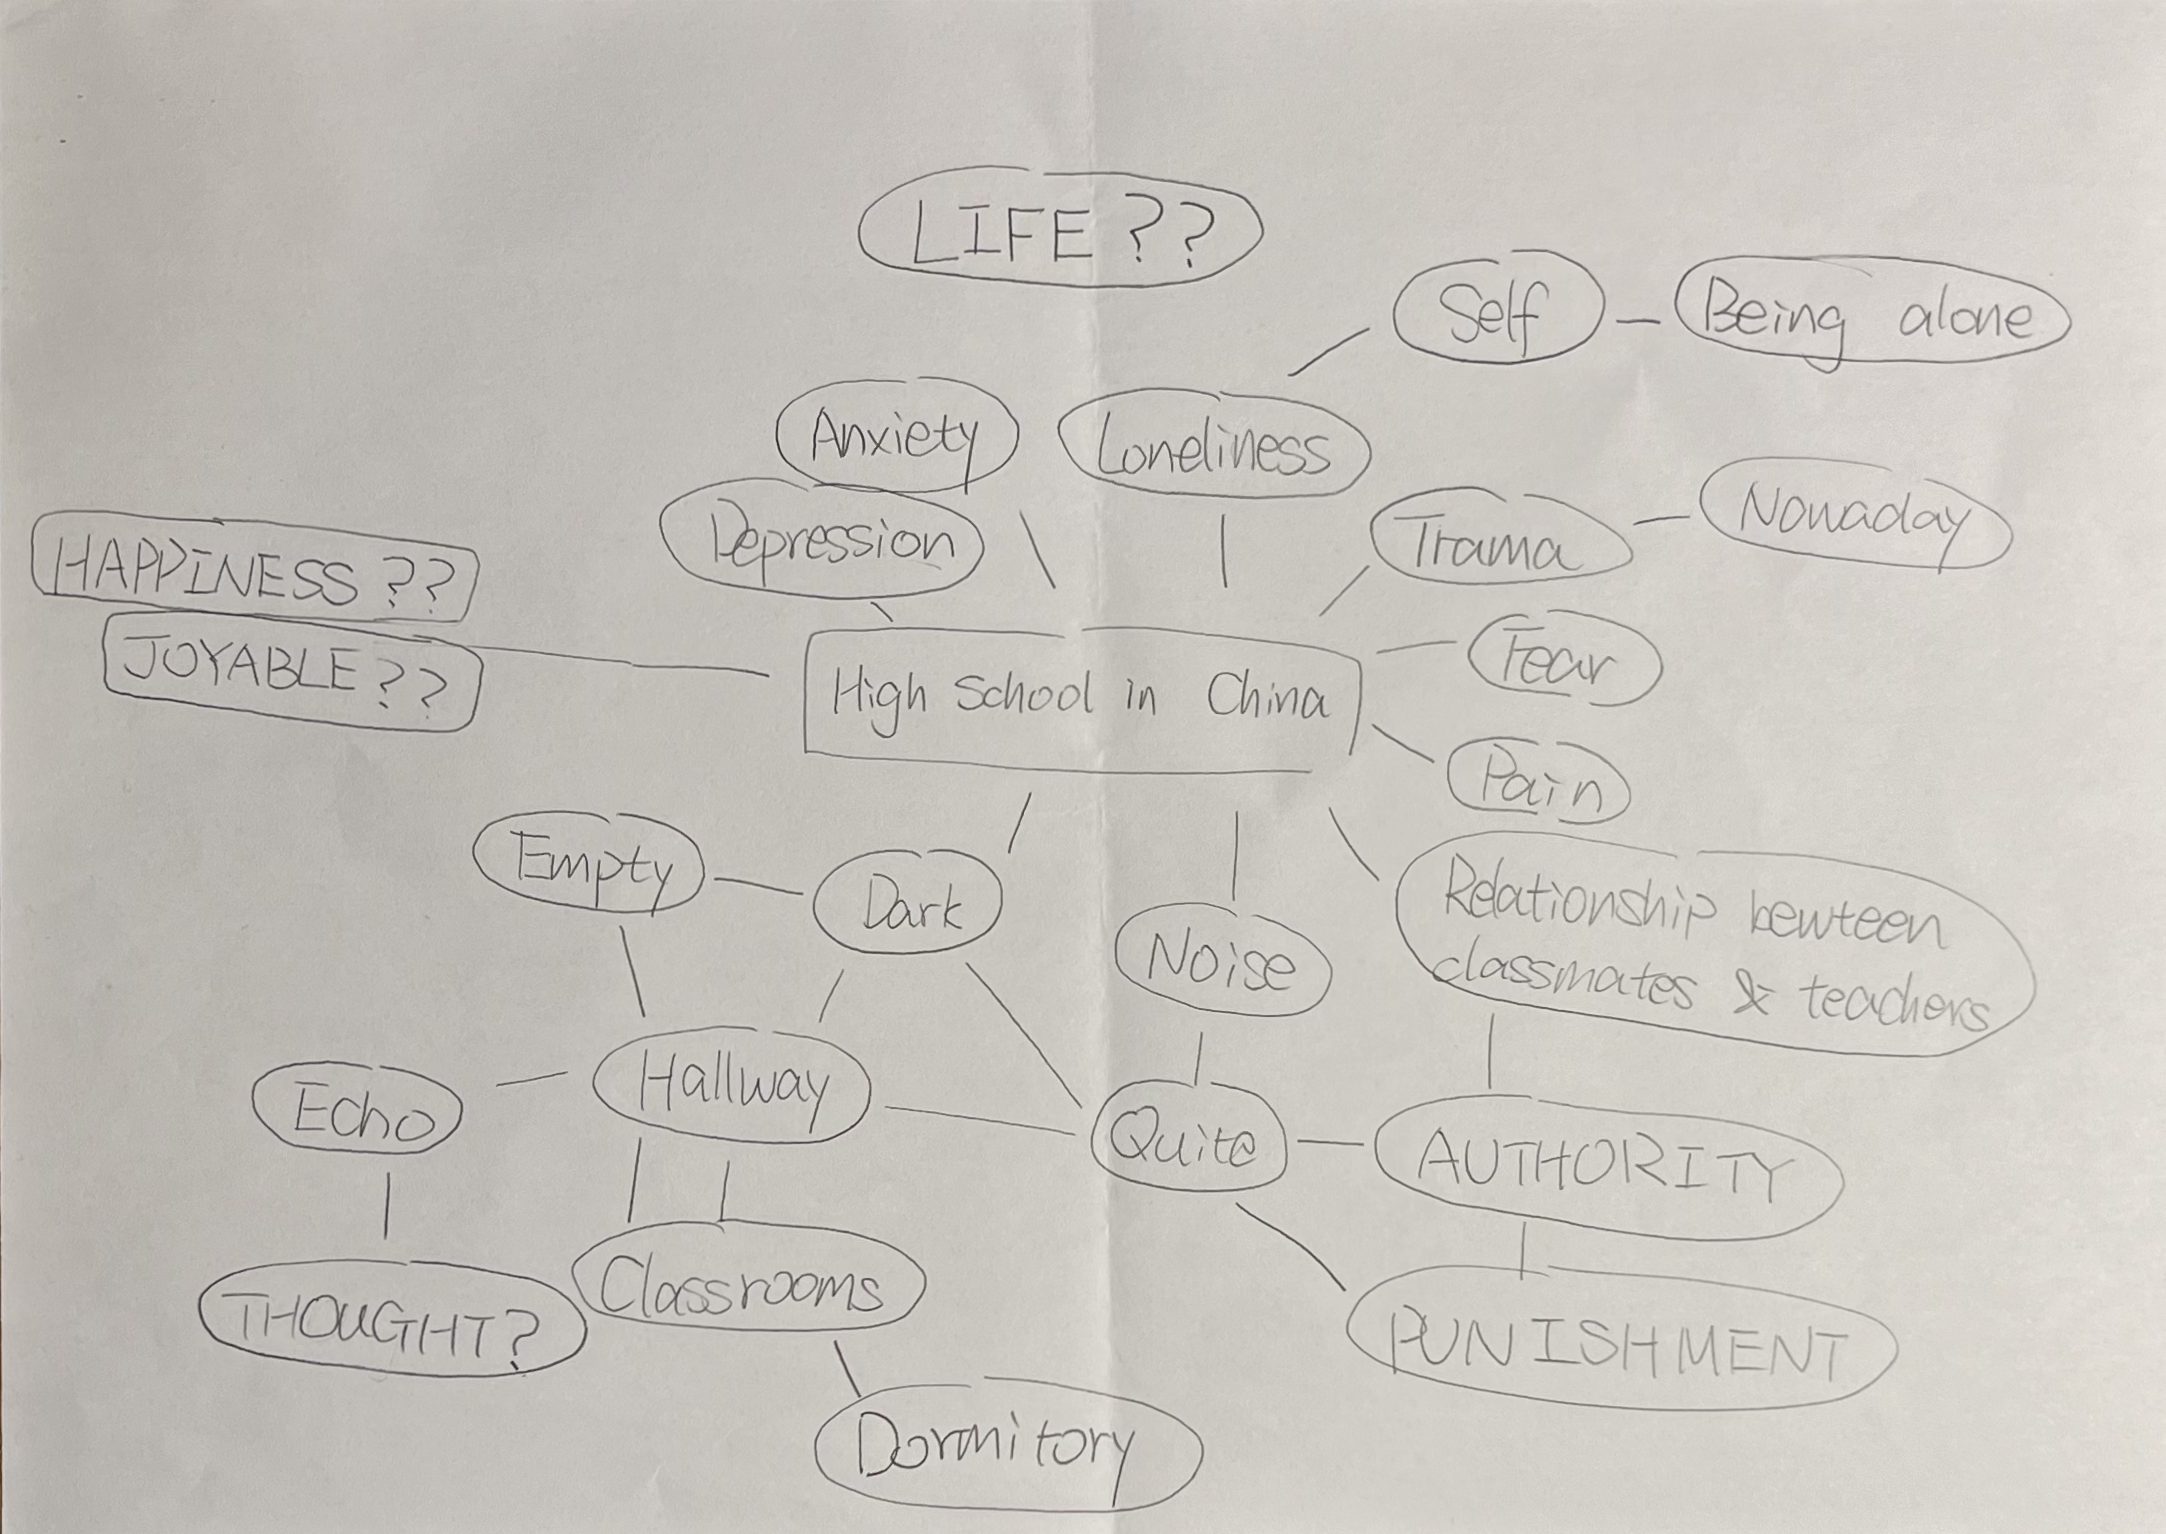 LIFE ??
Self
Being alone
Anxiety
Loneliness
Depression
Trama
Nowaday
HAPPINESS ??
JOYABLE ??
High School in China
Fear
Pain
Empty
Dark
Noise
Relationship bewteen
classmates & teachers
Echo
Hallway
Quite
AUTHORITY
THOUGHT?
Classrooms
PUNISHMENT
Dormitory